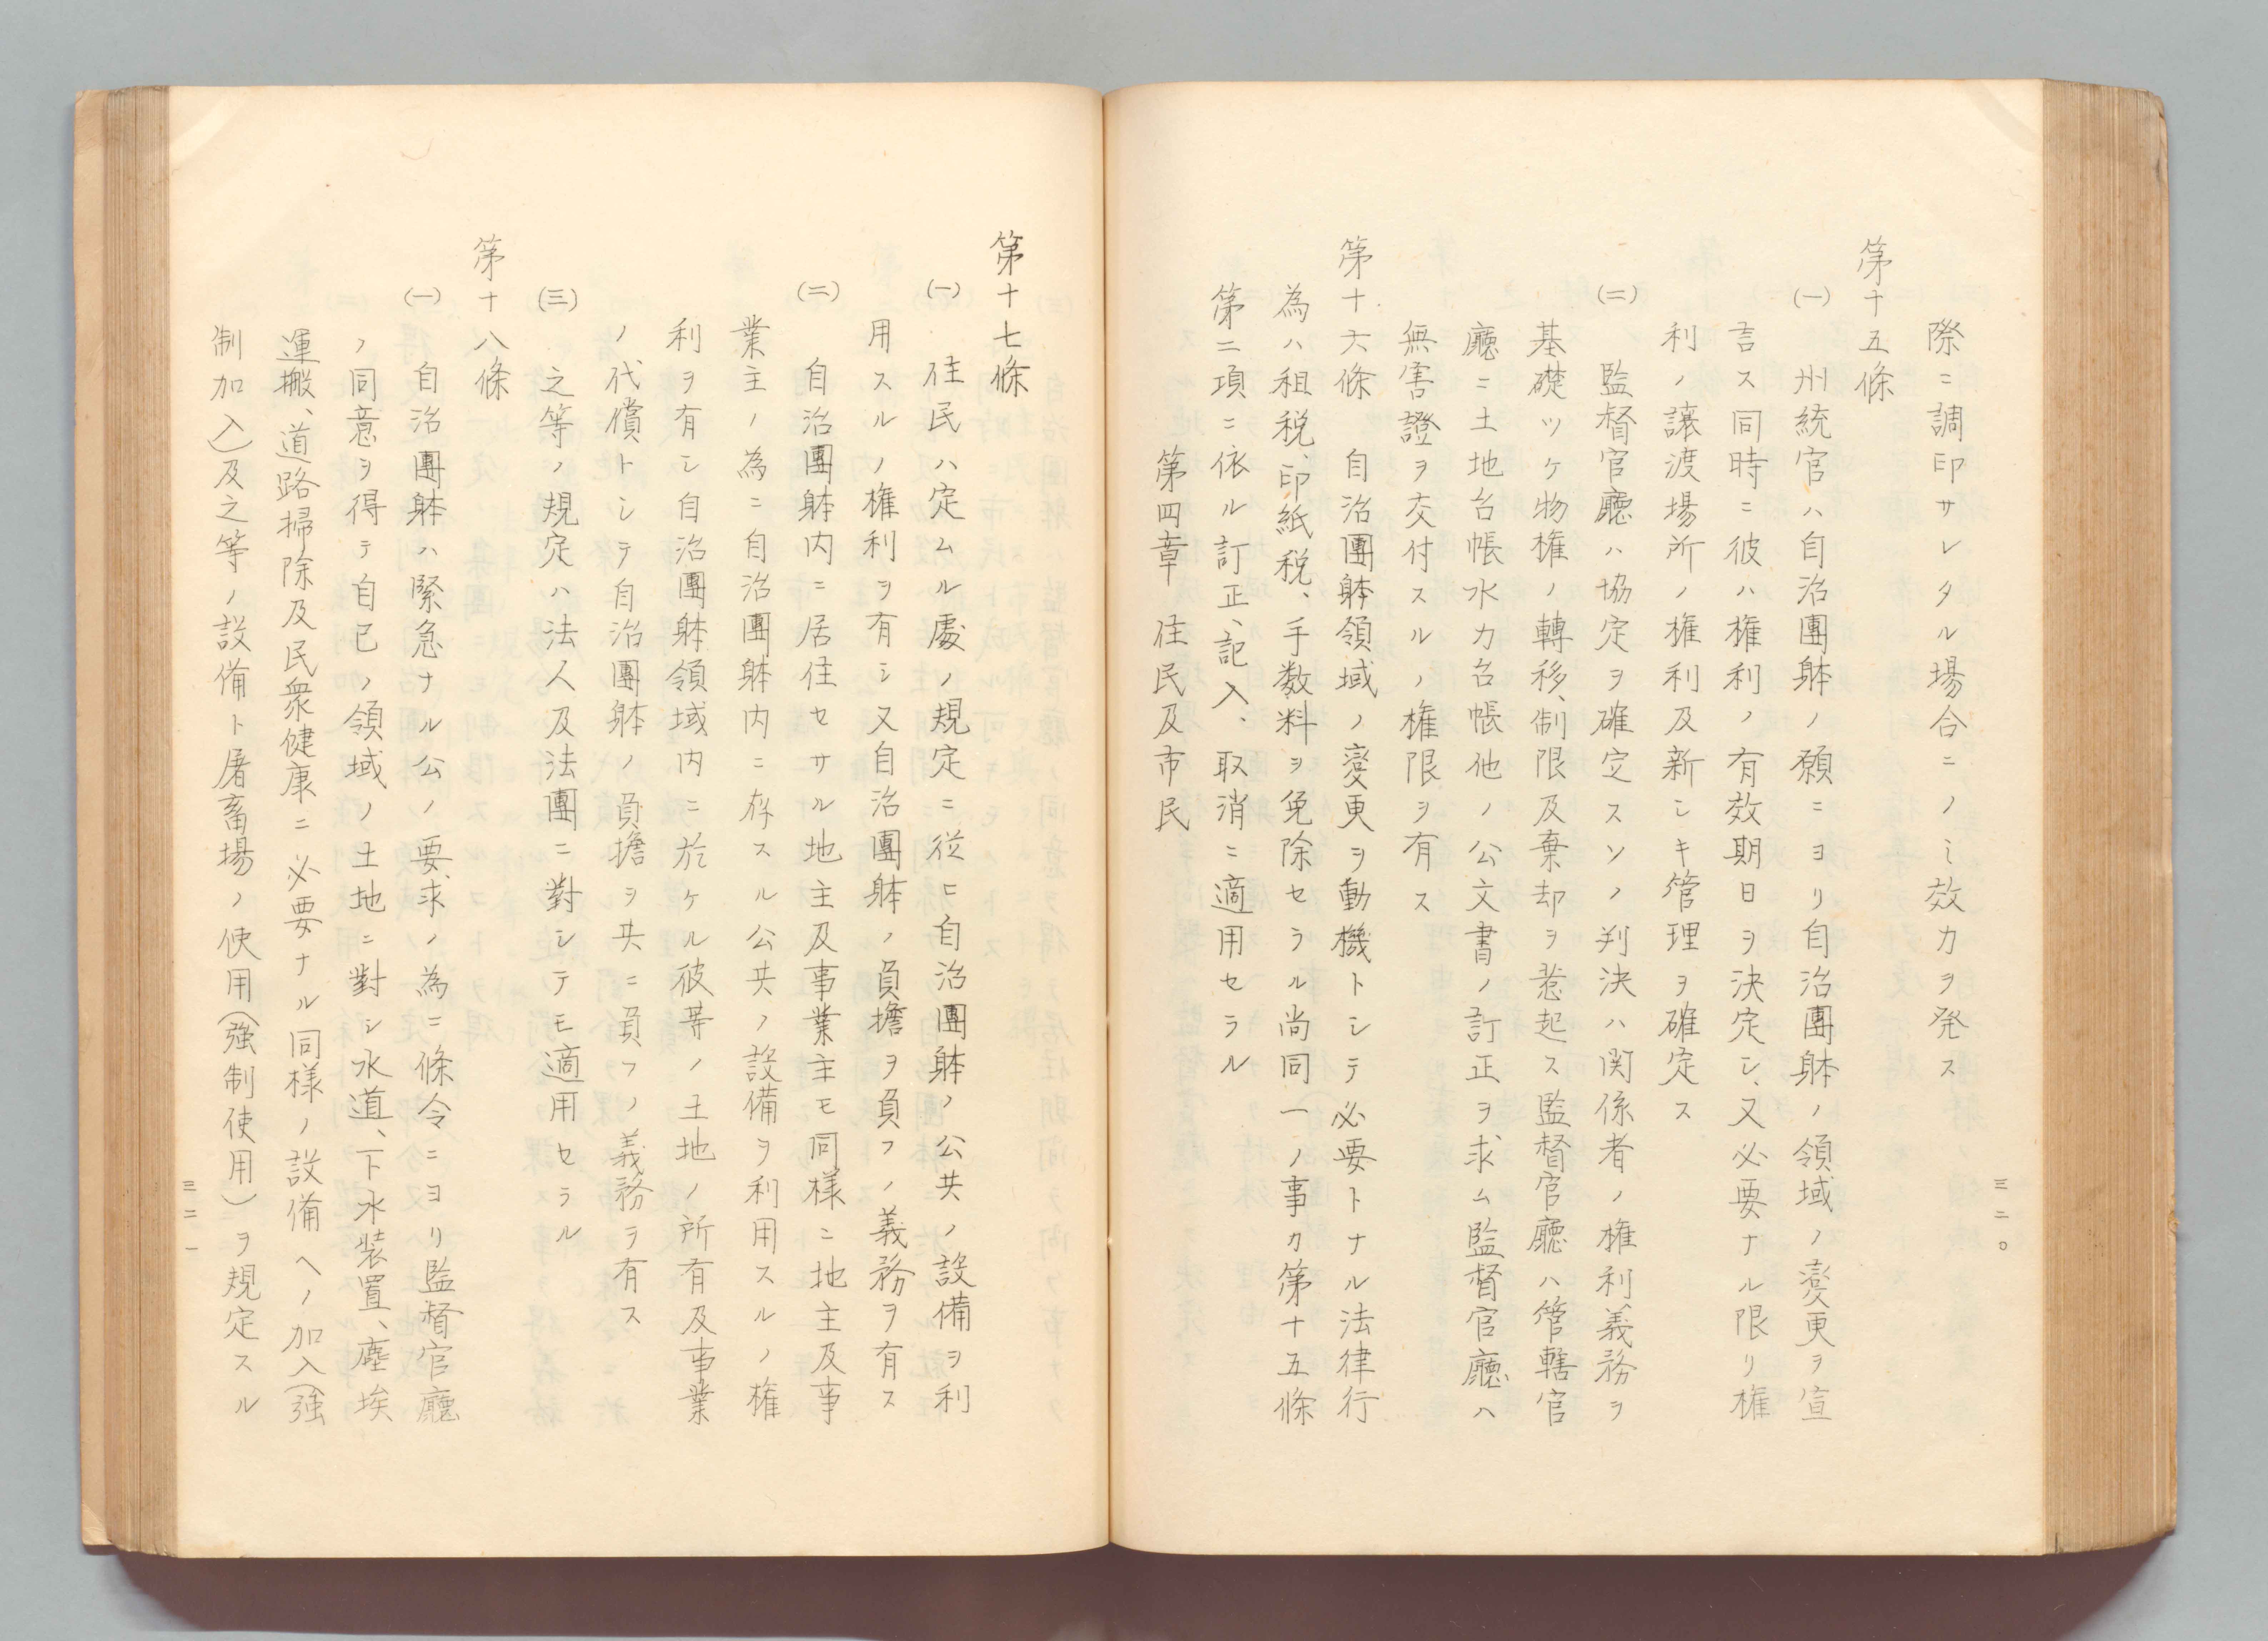 際ニ調印サレタル場合ニノミ效力ヲ発ス
第十五條
(一) 州統官ハ自治團躰ノ願ニヨリ自治團躰ノ領域ノ變更ヲ宣
言ス同時ニ彼ハ権利ノ有效期日ヲ決定シ、又必要ナル限リ権
利ノ譲渡場所ノ権利及新シキ管理ヲ確定ス
(二) 監督官廳ハ協定ヲ確定スソノ判決ハ関係者ノ権利義務ヲ
基礎ツケ物権ノ轉移、制限及棄却ヲ惹起ス監督官廳ハ管轄官
廳ニ土地台帳水力台帳他ノ公文書ノ訂正ヲ求ム監督官廳ハ
無害證ヲ交付スルノ権限ヲ有ス
第十六條 自治團躰領域ノ變更ヲ動機トシテ必要トナル法律行
為ハ租税、印紙税、手数料ヲ免除セラル尚同一ノ事カ第十五條
第二項ニ依ル訂正、記入、取消ニ適用セラル
第四章 住民及市民
三二〇
第十七條
(一) 住民ハ定ムル處ノ規定ニ從ヒ自治團躰ノ公共ノ設備ヲ利
用スルノ権利ヲ有シ又自治團躰ノ負擔ヲ負フノ義務ヲ有ス
(二) 自治團躰内ニ居住セサル地主及事業主モ同様ニ地主及事
業主ノ為ニ自治團躰内ニ存スル公共ノ設備ヲ利用スルノ権
利ヲ有シ自治團躰領域内ニ於ケル彼等ノ土地ノ所有及事業
ノ代償トシテ自治團躰ノ負擔ヲ共ニ負フノ義務ヲ有ス
(三) 之等ノ規定ハ法人及法團ニ對シテモ適用セラル
第十八條
(一) 自治團躰ハ緊急ナル公ノ要求ノ為ニ條令ニヨリ監督官廳
ノ同意ヲ得テ自已ノ領域ノ土地ニ對シ水道、下水装置、塵埃
運搬、道路掃除及民衆健康ニ必要ナル同様ノ設備ヘノ加入(強
制加入)及之等ノ設備ト屠畜場ノ使用(強制使用)ヲ規定スル
三二一